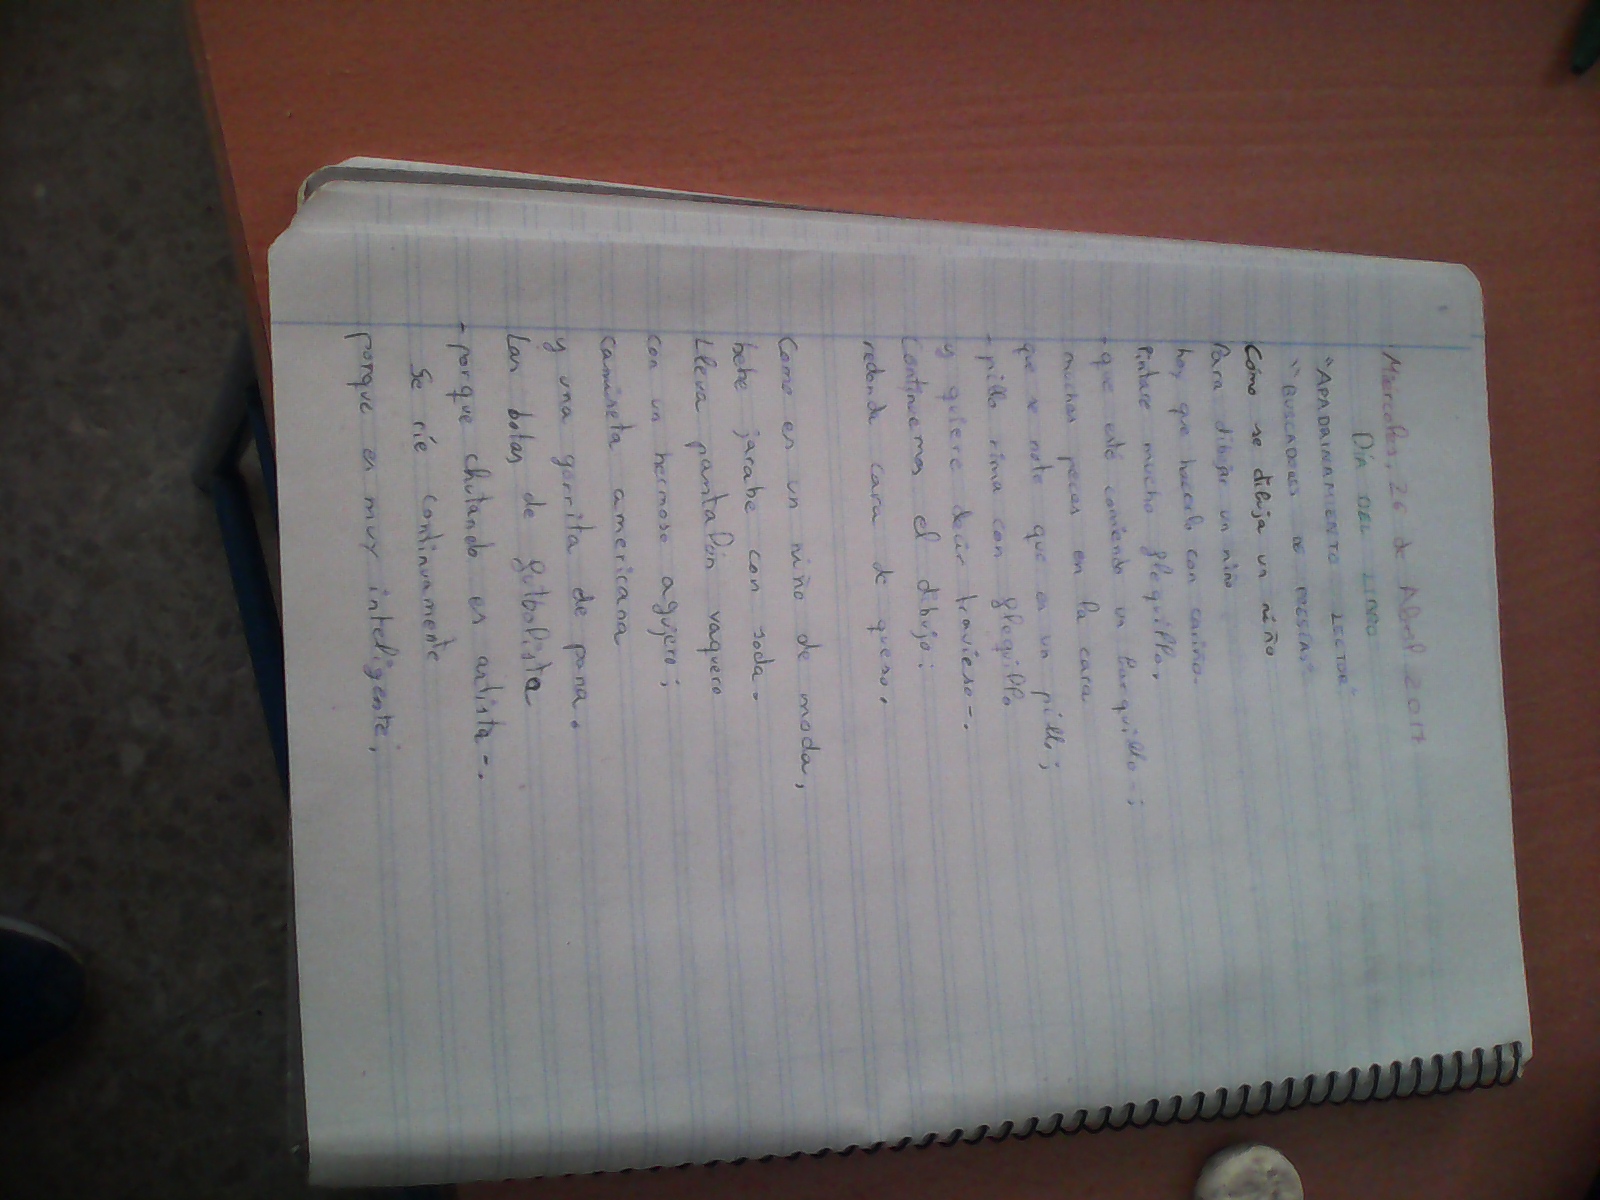 Miércoles, 26 de Abril 2017
DÍA DEL LIBRO
"APADRINAMIENTO LECTOR"
"BUSCADORES DE POESÍAS"
Cómo se dibuja un niño
Para dibujar un niño
hay que hacerlo con cariño.
Pintarle mucho flequillo,
- que esté comiendo un barquillo-;
muchas pecas en la cara
que se note que es un pillo;
- pillo rima con flequillo
y quiere decir travieso-.
Continuemos el dibujo:
redonda cara de queso.
Como es un niño de moda,
bebe jarabe con soda.
Lleva pantalón vaquero
con un hermoso agujero;
camiseta americana
y una gorrita de pana.
Las botas de futbolista
- porque chutando es artista-.
Se ríe continuamente
porque es muy inteligente;